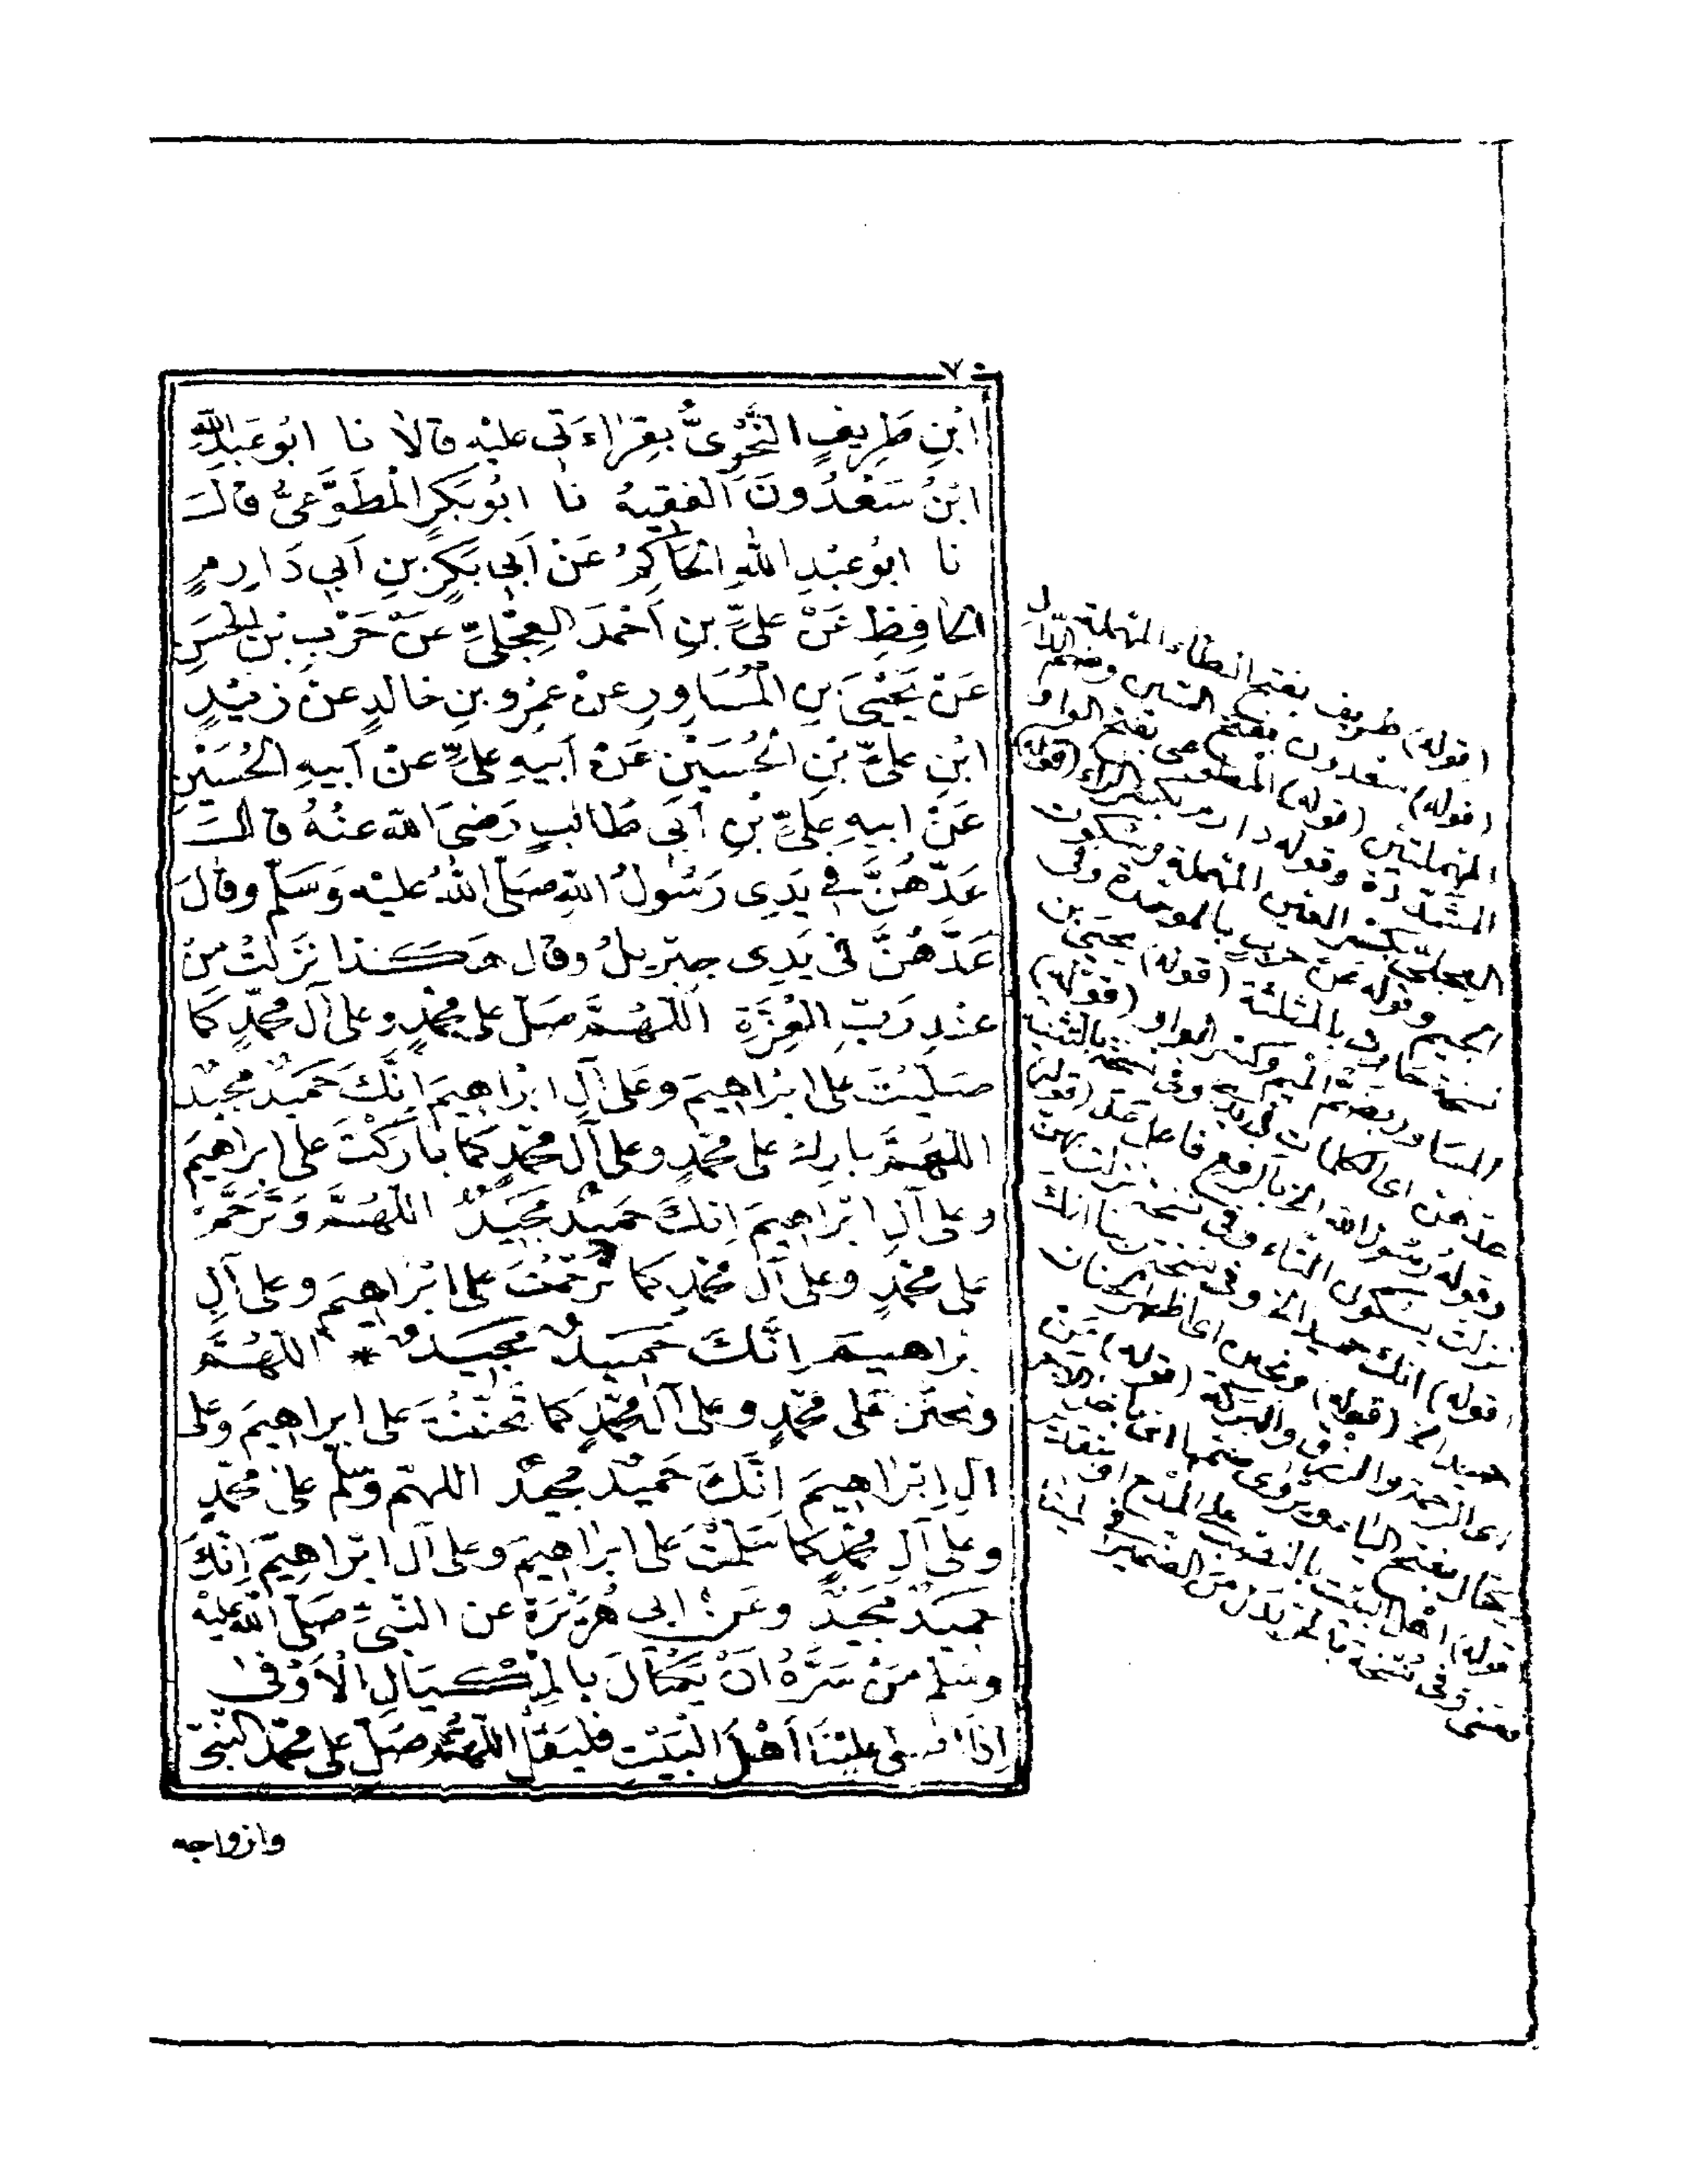 ٧٠
ابْنِ طَرِيفٍ النَّحْوِىُّ بِقِرَاءَتِى عليْه قالا نا ابُوعَبْدِاللّٰهِ
ابْنُ سَعْدُونَ الفَقِيهُ نا ابُوبَكْرٍ الْمُطَّوَّعِىُّ قالَ
نا ابُوعَبْدِ اللّٰهِ الْحَاكِمُ عَنْ اَبِى بَكْرِ بْنِ اَبِى دَارِمٍ
الحَافِظِ عَنْ عَلىِّ بنِ اَحْمَدَ العِجْلىِّ عَنْ حَرْبِ بْنِ الحسَنِ
عَنْ يَحْيَى بنِ الْمُسَاوِرِ عنْ عَمْرِو بنِ خالدٍ عنْ زَيْدِ
ابْنِ عَلىِّ بْنِ الحُسَيْنِ عَنْ اَبيهِ عَلىٍّ عنْ اَبيهِ الحُسَيْنِ
عَنْ ابيهِ عَلىِّ بْنِ اَبى طَالبٍ رَضىَ الله عنْهُ قالَ
عَدَّهُنَّ فى يَدِى رَسُولُ اللّٰهِ صَلّى اللّٰهُ عليْه وَسَلّم وقالَ
عَدَّهُنَّ فى يَدِى جبْرِيلُ وقال هَكَذا نَزَلَتْ مِنْ
عنْدِ رَبِّ الْعِزَّةِ اللّهُمَّ صَلّ على محمّدٍ وعلى آل محمّدٍ كما
صَلَّيْتَ على ابْرَاهِيمَ وعَلى آلِ ابْرَاهيمَ اِنّكَ حَميدٌ مجيدٌ
اللهُمَّ بارِكْ على محمّدٍ وعلى آلِ محمّدٍ كما بَارَكْتَ على ابرَاهِيمَ
وعلى آلِ ابْرَاهيمَ اِنّكَ حَميدٌ مجِيدٌ اللّهُمَّ وَتَرَحَّمْ
على محمّدٍ وعلى آل محمّدٍ كما تَرَحَّمْتَ على ابْرَاهيمَ وعلى آلِ
ابْرَاهيمَ اِنَّكَ حَميدٌ مجيدٌ * اللّهُمَّ
وتحنّنْ عَلى محمّدٍ وعلى آل محمّدٍ كما تحنّنْتَ على ابراهيمَ وعلى
آلِ اِبْرَاهِيمَ اِنَّكَ حَميْدٌ مجيدٌ اللهمّ وسَلّم على محمّدٍ
وعلى آلِ محمّدٍ كما سَلّمْتَ على ابْرَاهيمَ وعلى آلِ ابْرَاهِيمَ اِنّكَ
حميدٌ مجيدٌ وعَنْ ابى هُرَيْرَةَ عن النّبىِّ صَلّى اللّٰه عليْه
وسَلّم مَنْ سَرَّهُ اَنْ يَكْتَالَ بِالْمِكْيَالِ الْاَوْفى
اِذَا صلّى علَيْنَا اَهْلَ البَيْتِ فليَقُلْ اللّهُمَّ صَلّ على محمّدٍ النَّبىِّ
وازواجه
(قوله) طريف بفتح الطاء المهملة
(قوله) سعدون بفتح السّين وضم الدّال
المهملتين (قوله) المطّوعى بفتح الواو
المشدّدة وقوله دارم بكسر الراء (قوله)
العجلىّ بكسر العين المهملة وسكون
الجيم وقوله عن حرب بالموحّدة وفى
نسخة حارث بالمثلثة (قوله) يحيى بن
المساور بضمّ الميم وكسر الواو (قوله)
عدّهن اى الكلمات فى يدى وفى نسخة بالتثنية
وقوله رسول الله الخ بالرفع فاعل عدّ (قوله)
نزلت بسكون التّاء وفى نسخة نزلت بهنّ
(قوله) انك حميد الخ وفى نسخة ربنا انك
حميد الخ (قوله) وتحنن اى اظهر الحنان
اى الرحمة والرزق والبركة (قوله) مَن
يكتال بفتح الياء ويروى ضمها
(قوله) اهل البيت بالنّصب على المدح او
معنى وفى نسخة بالجرّ بدل من الضمير فى علينا